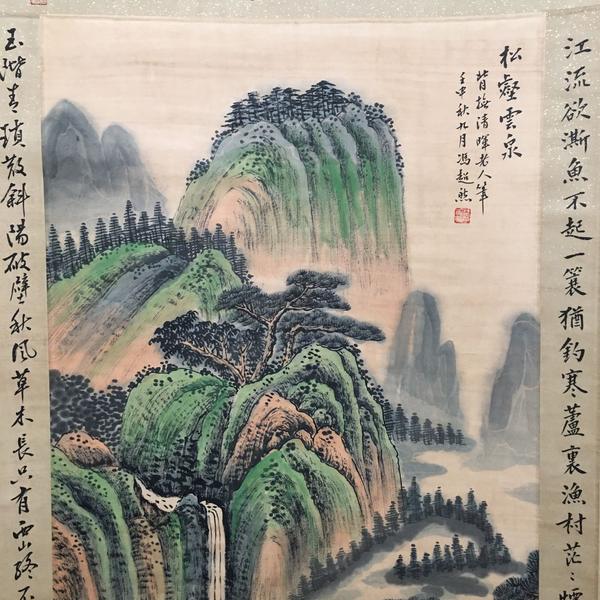 江流欲澌魚不起一簑猶釣寒蘆裏漁村茫々
松壑雲泉
背撫清暉老人筆
壬申秋九月馮超然
玉階青瑣散斜陽破壁秋風草木長只有西山終不